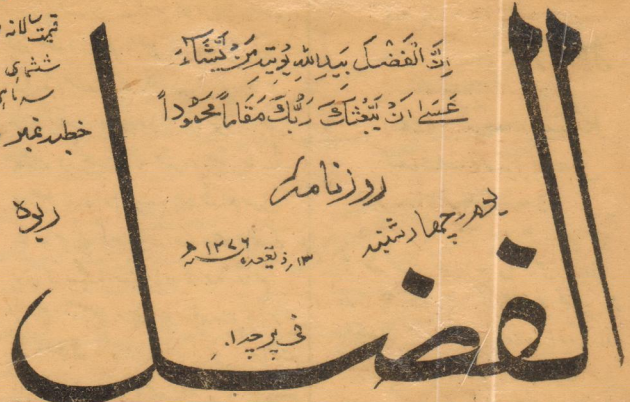 اِنَّ الْفَضْلَ بِيَدِ اللهِ يُؤْتِيْهِ مَنْ يَّشَآءُ
عَسَىٰ اَنْ يَّبْعَثَكَ رَبُّكَ مَقَامًا مَّحْمُوْدًا
روزنامہ
یوم چہار شنبہ
۱۳ ذیقعدہ ۱۳۷۶ھ
فی پرچہ ۱ر
الفضل
قیمت سالانہ
ششماہی
سہ ماہی
خطبہ نمبر
ربوہ